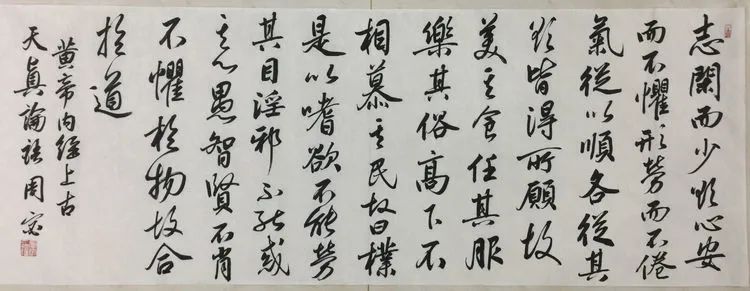 志閑而少欲心安
而不懼形勞而不倦
氣從以順各從其
欲皆得所願故
美其食任其服
樂其俗高下不
相慕其民故曰樸
是以嗜欲不能勞
其目淫邪不能惑
其心愚智賢不肖
不懼於物故合
於道
黄帝内經上古
天眞論語周